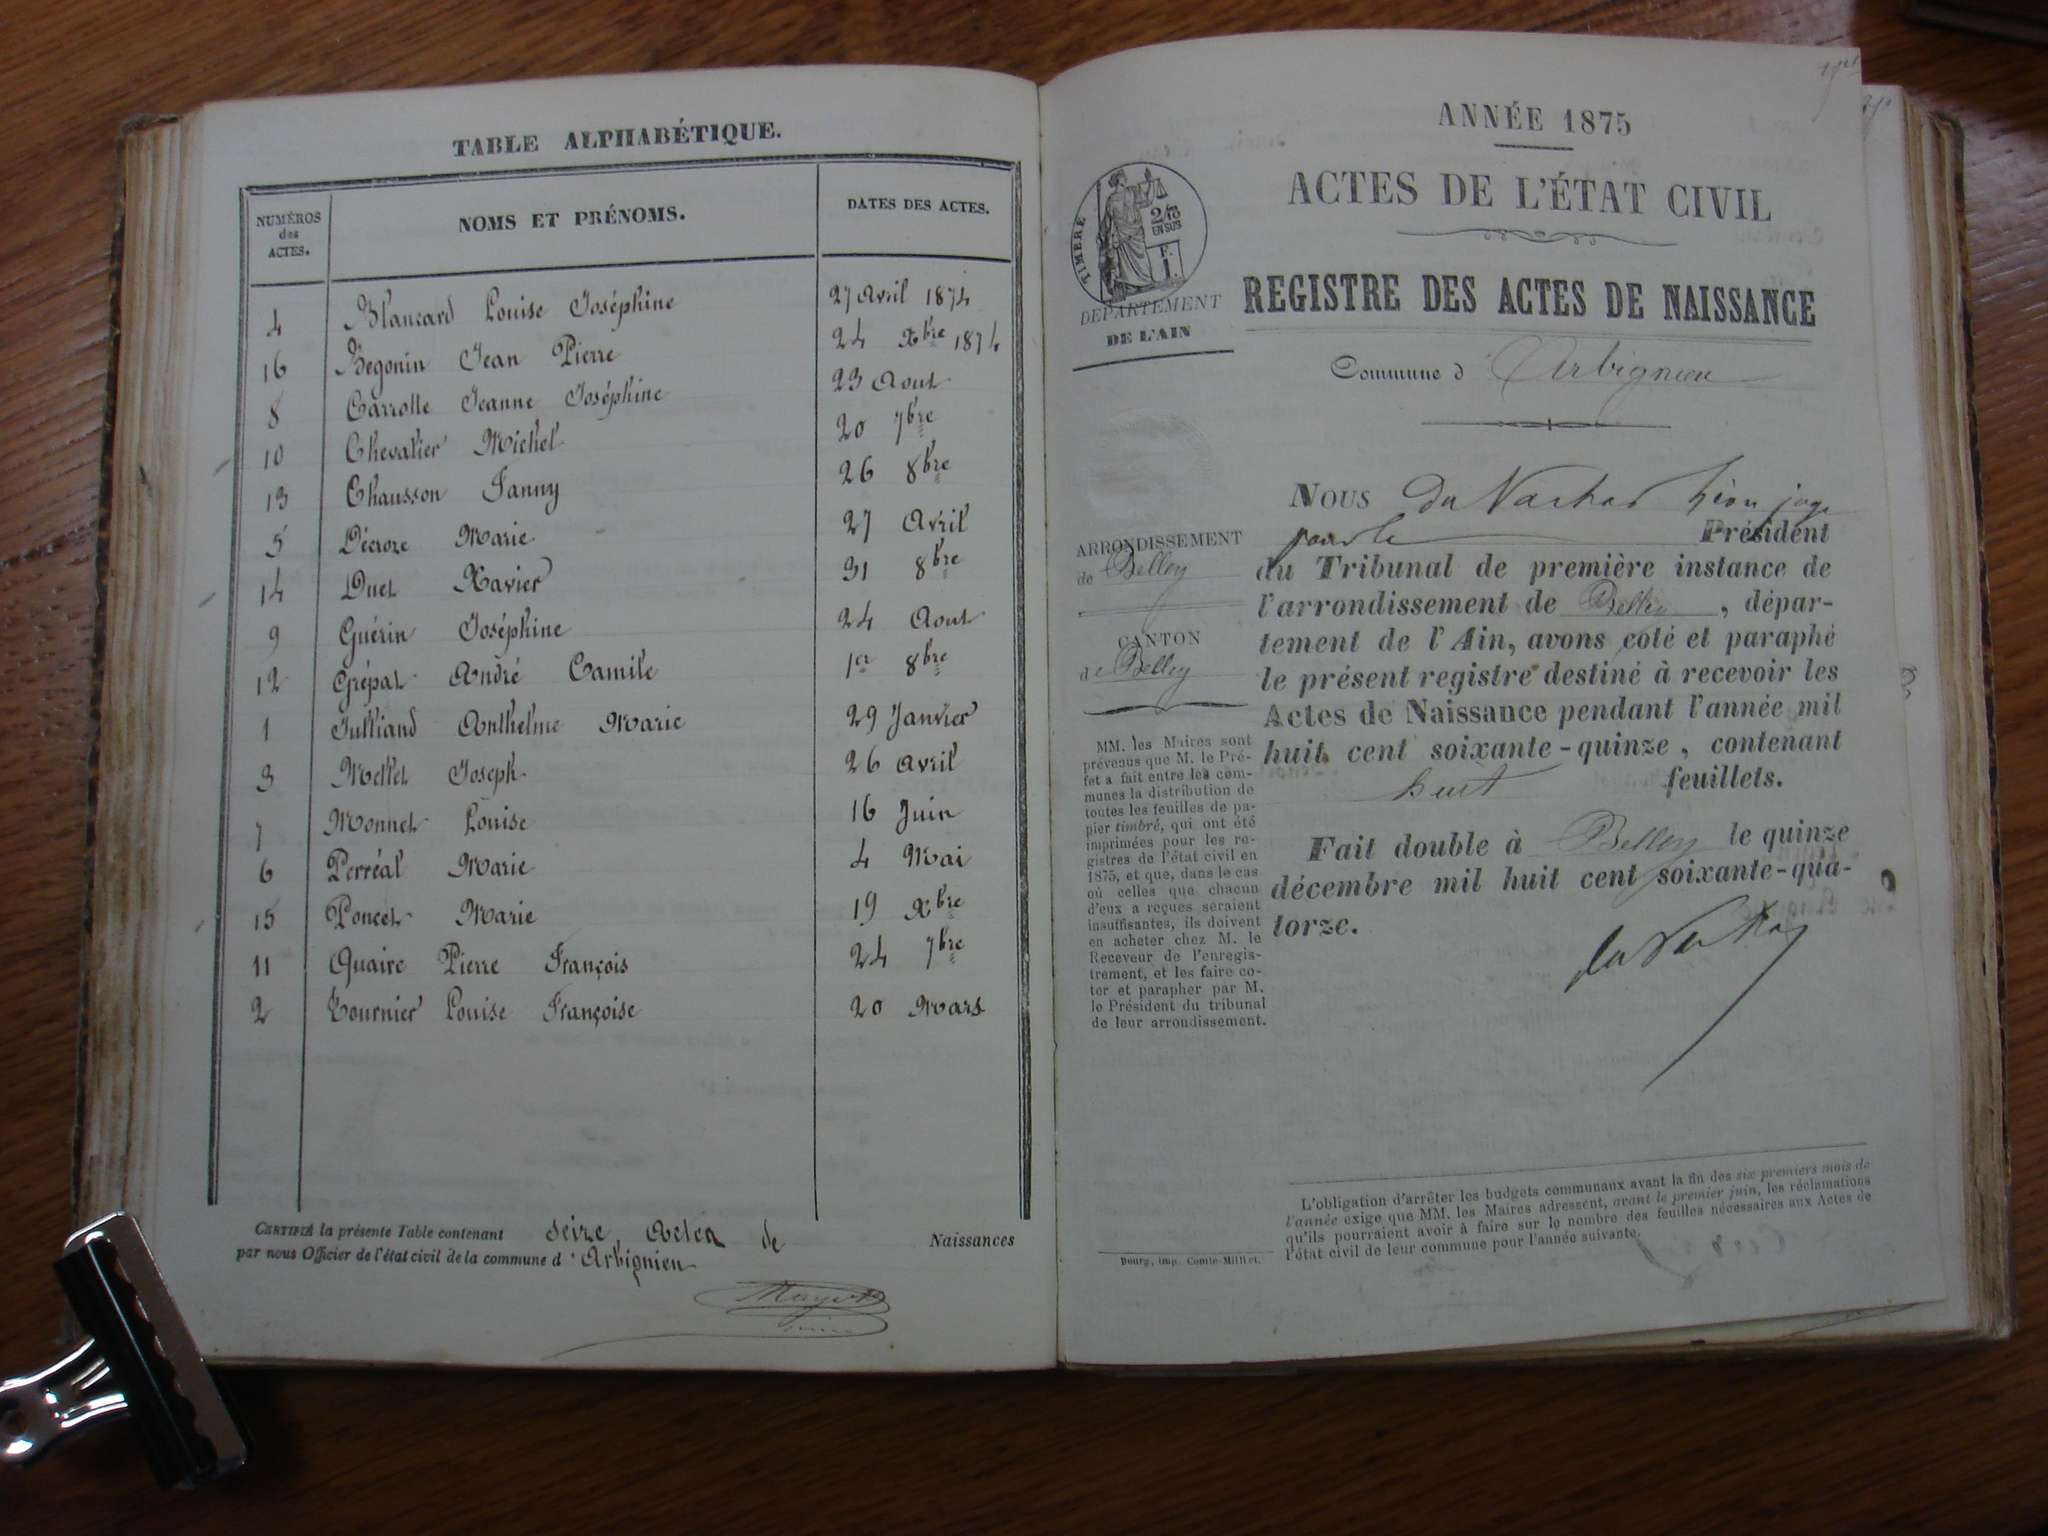 TABLE ALPHABÉTIQUE.
NUMÉROS des ACTES. NOMS ET PRÉNOMS. DATES DES ACTES.
4 Blancard Louise Joséphine 27 Avril 1874
16 Begonin Jean Pierre 24 Xbre 1874
8 Carrotte Jeanne Joséphine 23 Aout
10 Chevalier Michel 20 7bre
13 Chausson Fanny 26 8bre
5 Décroze Marie 27 Avril
14 Duet Xavier 31 8bre
9 Guérin Joséphine 24 Aout
12 Grépat André Camile 1er 8bre
1 Julliand Anthelme Marie 29 Janvier
3 Mettet Joseph 26 Avril
7 Monnet Louise 16 Juin
6 Perréal Marie 4 Mai
15 Poncet Marie 19 Xbre
11 Quaire Pierre François 24 7bre
2 Tournier Louise Françoise 20 Mars
CERTIFIÉ la présente Table contenant seize Actes de Naissances
par nous Officier de l'état civil de la commune d'Arbignieu
ANNÉE 1875
ACTES DE L'ÉTAT CIVIL
TIMBRE
2/10
EN SUS
F.
1.
REGISTRE DES ACTES DE NAISSANCE
DÉPARTEMENT
DE L'AIN
Commune d'Arbignieu
NOUS
Président
du Tribunal de première instance de
l'arrondissement de Belley, dépar-
tement de l'Ain, avons coté et paraphé
le présent registre destiné à recevoir les
Actes de Naissance pendant l'année mil
huit cent soixante-quinze, contenant
huit feuillets.
Fait double à Belley le quinze
décembre mil huit cent soixante-qua-
torze.
ARRONDISSEMENT
de Belley
CANTON
de Belley
MM. les Maires sont
prévenus que M. le Pré-
fet a fait entre les com-
munes la distribution de
toutes les feuilles de pa-
pier timbré, qui ont été
imprimées pour les re-
gistres de l'état civil en
1875, et que, dans le cas
où celles que chacun
d'eux a reçues seraient
insuffisantes, ils doivent
en acheter chez M. le
Receveur de l'enregis-
trement, et les faire co-
ter et parapher par M.
le Président du tribunal
de leur arrondissement.
L'obligation d'arrêter les budgets communaux avant la fin des six premiers mois de
l'année exige que MM. les Maires adressent, avant le premier juin, les réclamations
qu'ils pourraient avoir à faire sur le nombre des feuilles nécessaires aux Actes de
l'état civil de leur commune pour l'année suivante.
Bourg, imp. Comte-Milliet.